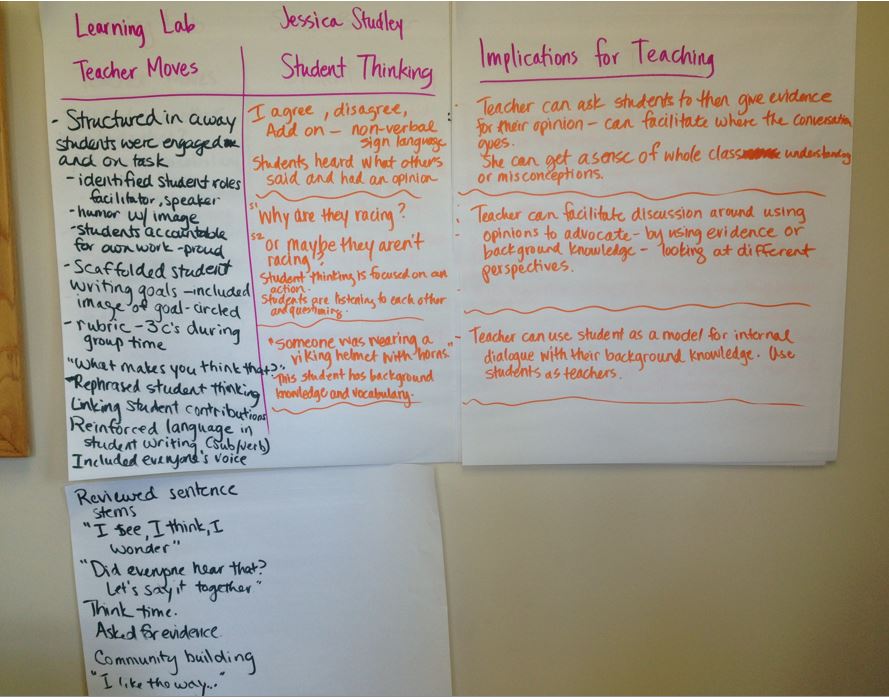 Learning Lab
Jessica Studley
Teacher Moves
- Structured in a way
students were engaged
and on task
- identified student roles
facilitator, speaker
- humor w/ image
- students accountable
for own work - proud
- Scaffolded student
writing goals - included
image of goal - circled
- rubric - 3 c's during
group time
"What makes you think that?"
Rephrased student thinking
Linking student contributions
Reinforced language in
student writing (sub/verb)
Included everyone's voice
Reviewed sentence
stems
"I see, I think, I
wonder"
"Did everyone hear that?
Let's say it together"
Think time.
Asked for evidence.
Community building
"I like the way..."
Student Thinking
I agree, disagree,
Add on - non-verbal
sign language
Students heard what others
said and had an opinion
S1 "Why are they racing?
S2 or maybe they aren't
racing?
Student thinking is focused on an
action.
Students are listening to each other
and questioning.
"Someone was wearing a
viking helmet with horns."
- This student has background
knowledge and vocabulary.
Implications for Teaching
- Teacher can ask students to then give evidence
for their opinion - can facilitate where the conversation
goes.
She can get a sense of whole class understanding
or misconceptions.
- Teacher can facilitate discussion around using
opinions to advocate - by using evidence or
background knowledge - looking at different
perspectives.
- Teacher can use student as a model for internal
dialogue with their background knowledge. Use
students as teachers.